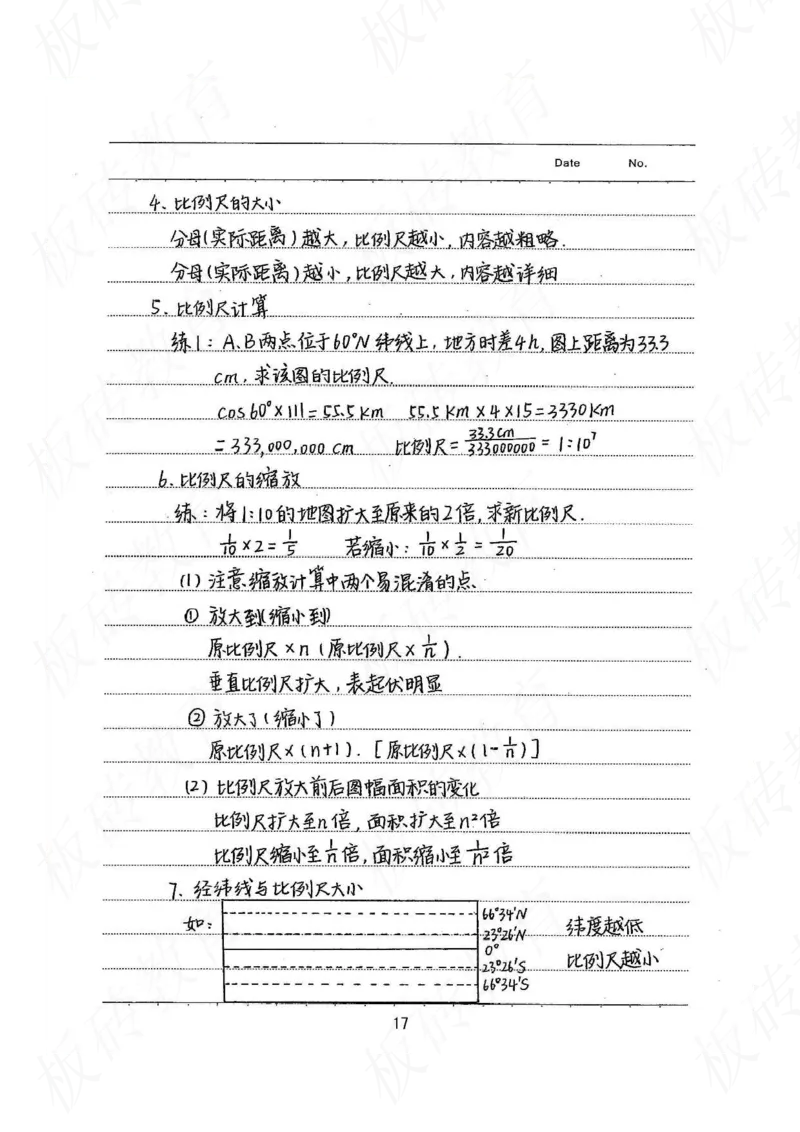 Date No.
4、比例尺的大小
分母(实际距离)越大，比例尺越小，内容越粗略.
分母(实际距离)越小，比例尺越大，内容越详细
5、比例尺计算
练1：A、B两点位于60°N纬线上，地方时差4h，图上距离为33.3
cm，求该图的比例尺.
cos60°×111=55.5km 55.5km×4×15=3330km
=333,000,000cm 比例尺=33.3cm/333000000=1:10⁷
6、比例尺的缩放
练：将1:10的地图扩大至原来的2倍，求新比例尺.
1/10×2=1/5 若缩小：1/10×1/2=1/20
(1)注意缩放计算中两个易混淆的点.
①放大到(缩小到)
原比例尺×n(原比例尺×1/n).
垂直比例尺扩大，表起伏明显
②放大了(缩小了)
原比例尺×(n+1).[原比例尺×(1-1/n)]
(2)比例尺放大前后图幅面积的变化
比例尺扩大至n倍，面积扩大至n²倍
比例尺缩小至1/n倍，面积缩小至1/n²倍
7、经纬线与比例尺大小
如：
66°34'N
23°26'N
0°
23°26'S
66°34'S
纬度越低
比例尺越小
17
板砖教育